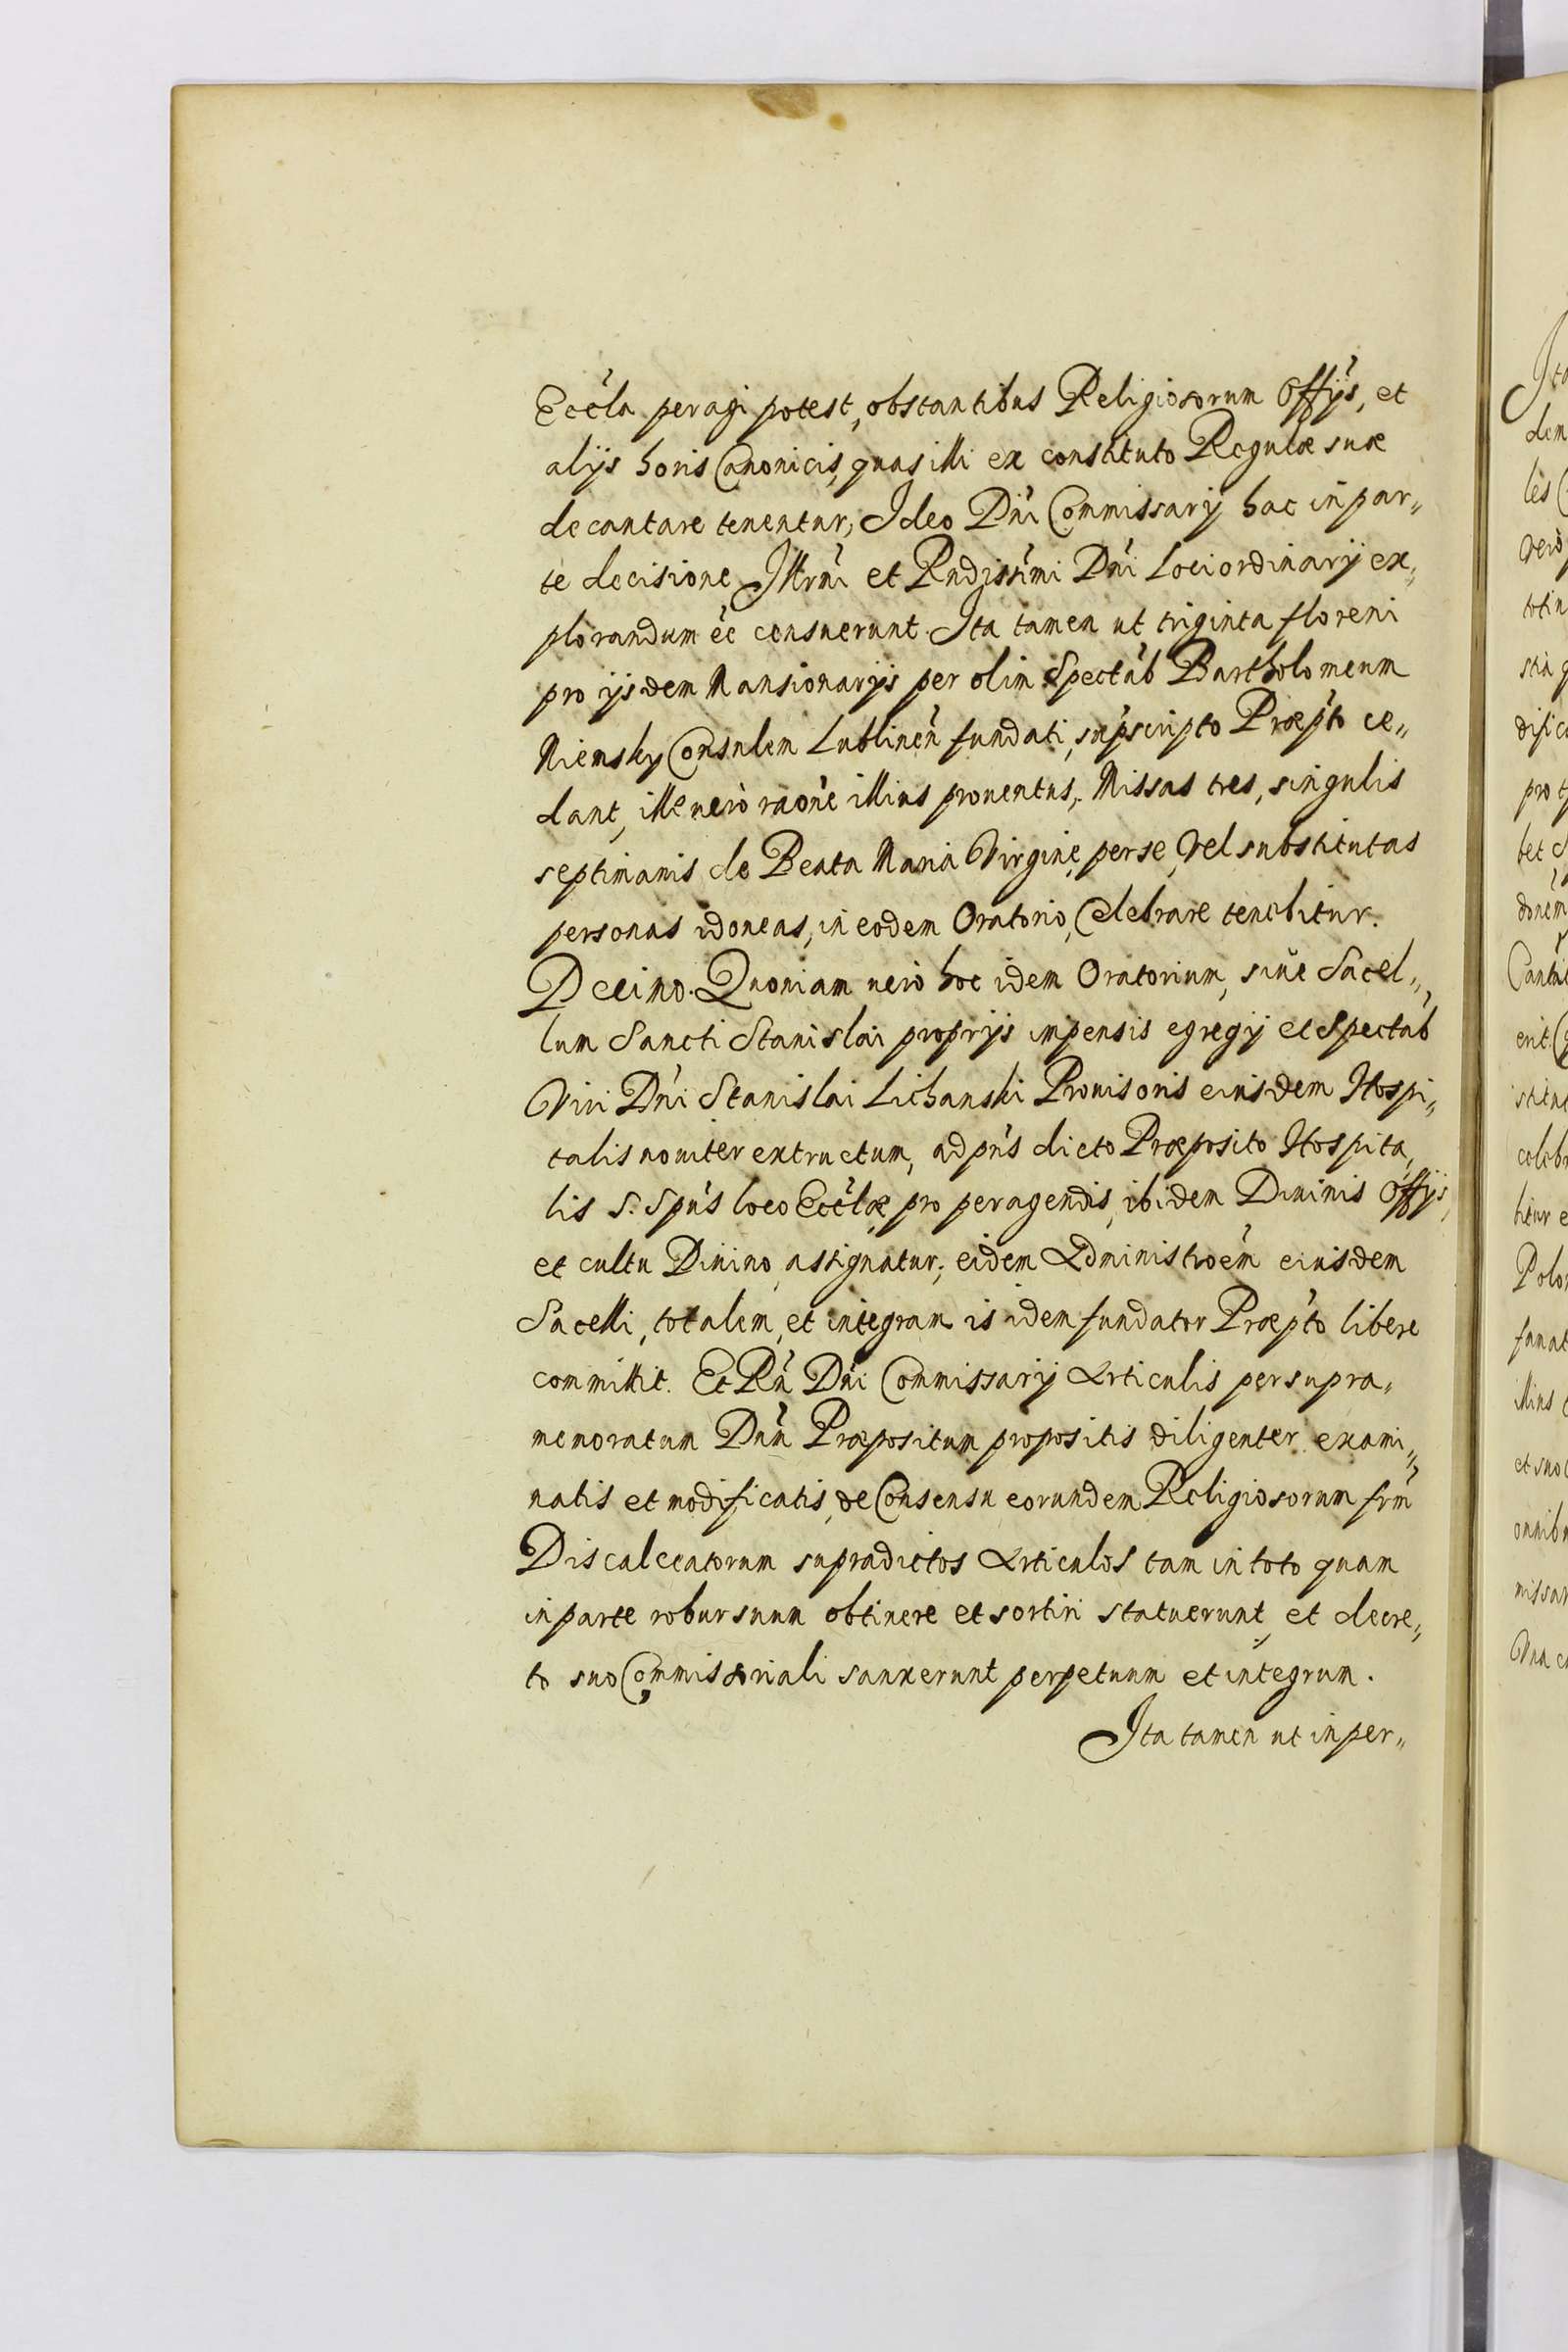 Eccla peragi potest, obstantibus Religiosorum Offijs, et
alijs horis Canonicis, quas illi ex constituto Regulæ suæ
decantare tenentur, Ideo Dni Commissarij hac in par„
te decisione Illrmi et Rndissimi Dni Loci ordinarij ex„
plorandum ee censuerunt. Ita tamen ut triginta floreni
pro ijsdem Mansionarijs per olim Spectab Bartholomeum
Niemsky Consulem Lublinen fundati, supscripto Præpto ce„
dant, ille uerò raone illius prouentus, Missas tres, singulis
septimanis de Beata Maria Virgine, per se, Vel substitutas
personas idoneas, in eodem Oratorio, Celebrare tenebitur.
Decimo. Quoniam uerò hoc idem Oratorium, siue Sacel„
lum Sancti Stanislai proprijs impensis egregij et Spectab
Viri Dni Stanislai Lichanski Prouisoris eiusdem Hospi„
talis nouiter extructum, ad pns dicto Præposito Hospita„
lis S. Spus loco Ecclæ pro peragendis, ibidem Diuinis Offijs,
et cultu Diuino, assignatur, eidem Administroem eiusdem
Sacelli, totalem, et integram is idem fundator Præpto libere
committit. Et Rn Dni Commissarij Articulis per supra„
memoratum Dnm Præpositum propositis diligenter exami„
natis et modificatis, de Consensu eorundem Religiosorum frm
Discalceatorum supradictos Articulos tam in toto quam
in parte robur suum obtinere et sortiri statuerunt, et decre„
to suo Commissoriali sanxerunt perpetuum et integrum.
Ita tamen ut in per„